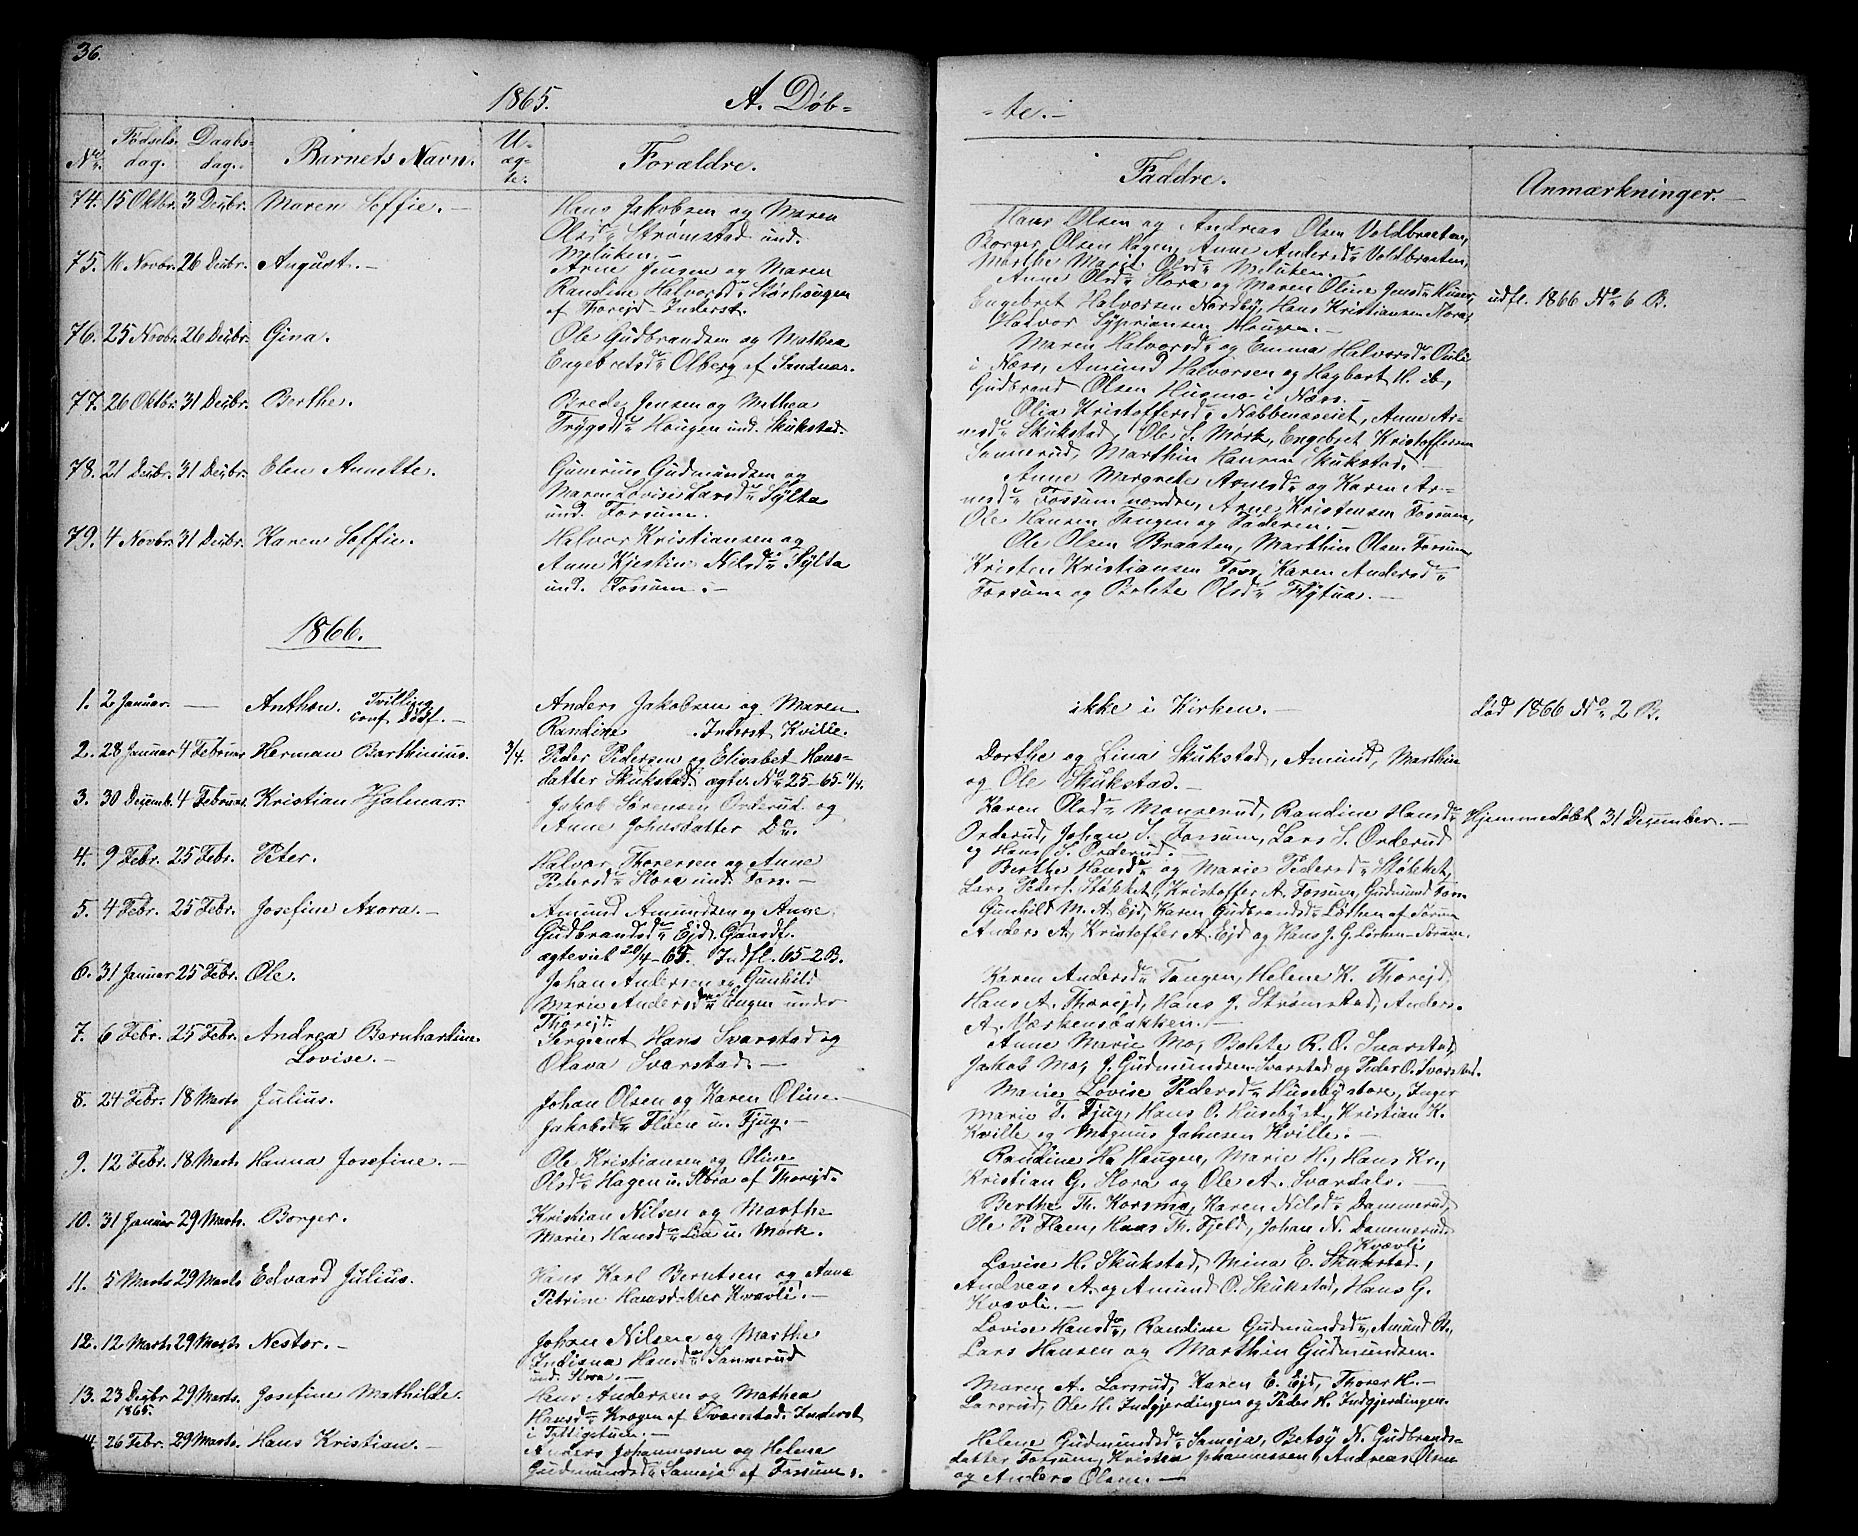 36.
1865. A. Døb-
-te.-
No. Fødsels- dag. Daabs- dag. Barnets Navn. U- æg- te. Forældre. Faddre. Anmærkninger.
74. 15 Oktbr. 3 Decbr. Maren Soffie.- Hans Jakobsen og Maren
Olsdr. Strømstad und.
Meluken.-
Hans Olsen og Andreas Olsen Voldbraaten,
Borger Olsen Hagen, Anne Andersdr. Voldbraaten,
Marthe Marie Olsdr. Meluken.
75. 11 Novbr. 26 Decbr. August.- Arne Jensen og Maren
Randine Halvorsdr. Størhougen
af Thorejd-Inderst.
Anne Olsdr. Hora og Maren Oline Jensdr.
Engebret Halvorsen Nordby, Hans Kristiansen Hora,
Halvor Syprianssen Hougen.-
udfl. 1866 No. 6 B.
76. 25 Novbr. 26 Decbr. Gina. Ole Gudbrandsen og Mathea
Engebretsdr. Olberg af Sandnæs.
Maren Halvorsdr. og Emma Halvorsdr.
i Næss, Amund Halvorsen og Hagbart H. ib,
Gudbrand Olsen Husmo i Næss.-
77. 26 Oktbr. 31 Decbr. Berthe. Brede Jensen og Mathea
Trygsdr. Hougen und. Skukstad.
Olia Kristoffersdr. Nabbenæseiet, Anne Ar-
nesdr. Skukstad, Ole S. Mørk, Engebret Kristoffersen
Sannerud, Marthin Hansen Skukstad.-
78. 21 Decbr. 31 Decbr. Elen Annette. Gunerius Gudmundsen og
Maren Lovise Larsdr. Sylta
und. Fossum.
Anne Margrete Arnesdr. og Karen Ar-
nesdr. Fossum nordre, Arne Kristensen Fossum,
Ole Hansen Tangen og Faderen.-
79. 4 Novbr. 31 Decbr. Karen Soffie. Halvor Kristiansen og
Anne Kjestine Nilsdr. Sylta
und. Fossum.-
Ole Olsen Braaten, Marthin Olsen Fossum,
Kristen Kristiansen Foss, Karen Andersdr.
Fossum og Bolete Olsdr. Flytua.-
1866.
1. 2 Januar. - Anthon. Tvilling
conf. Død.-
Anders Jakobsen og Maren
Randine Inderst Kville.
ikke i Kirken.-
død 1866 No. 2 B.
2. 28 Januar 4 Februar Herman Barthinius. 3/4. Peder Pedersen og Elisabet Hans-
datter Skukstad. ægtev. No. 25-65-11/4.
Dorthe og Lina Skukstad, Amund, Marthin
og Ole Skukstad.-
3. 30 Decemb. 4 Februar. Kristian Hjalmar. Jakob Sørensen Orderud og
Anne Johnsdatter Do.
Karen Olsdr. Monserud, Randine Hansdr.
Orderud, Johan S. Fossum, Lars S. Orderud
og Hans S. Orderud.-
Hjemmedøbt 31 December.-
4. 9 Febr. 25 Febr. Peter. Halvor Thoresen og Anne
Pedersdr. Hora und. Foss.-
Berthe Hansdr. og Marie Pedersdr. Støkket,
Lars Peders. Støkket, Kristoffer A. Fossum, Gudmund Foss.
5. 4 Febr. 25 Febr. Josefine Axora.- Amund Amundsen og Anne
Gudbrandsdr. Ejd Gaardf.
ægteviet 20/4-65. Indfl. 65-2B.
Gunhild M. A. Ejd, Karen Gudbrandsdr. Løthen af Sørum
Anders A, Kristoffer A. Ejd og Hans J. G. Løthen-Sørum.
6. 31 Januar 25 Febr. Ole. Johan Andersen og Gunhild
Marie Andersdr. Tangen under
Thorejd.
Karen Andersdr. Tangen, Helene K. Thorejd,
Hans A. Thorejd, Hans J. Strømstad, Anders
A. Værkensbakken.-
7. 6 Febr. 25 Febr. Andrea Bernhardine
Lovise.-
Sergiant Hans Svarstad og
Olava Svarstad.-
Anne Marie Mo, Bolete R. O. Svarstad,
Jakob Mo, J. Gudmundsen-Svarstad og Peder O. Svarstad.
8. 24 Febr. 18 Marts Julius. Johan Olsen og Karen Oline
Jakobsdr. Flaen u. Fjug.-
Marie Lovise Pedersdr. Huseby store, Inger
Marie T. Fjug, Hans O. Huseby st, Kristian K.
Kville og Magnus Johnsen Kville.-
9. 12 Febr. 18 Marts Hanna Josefine.- Ole Kristiansen og Oline
Olsdr. Hagen u. Hora af Thorejd.
Randine Ha Haugen, Marie H., Hans Kr.,
Kristian G. Hora og Ole A. Svardals.-
10. 31 Januar 29 Marts. Borger. Kristian Nilsen og Marthe
Marie Hansdr. Lia u. Mørk.
Berthe Th. Korsmo, Karen Nilsdr. Dammerud,
Ole P. Flaen, Hans Th. Fjeld, Johan N. Dammerud.
11. 5 Marts 29 Marts Edvard Julius. Hans Karl Berntsen og Anne
Petrine Hansdatter Kvævli.-
Kvævli
Lovise H. Skukstad, Mina E. Skukstad,
Andreas A. og Amund O. Skukstad, Hans G.
Kvævli.-
12. 12 Marts 29 Marts Nestor.- Johan Nilsen og Marthe
Indiana Hansdr. Sannerud
und. Hora.-
Lovise Hansdr., Randine Gudmundsdr., Amund A.,
Lars Hansen og Marthin Gudmundsen.
13. 23 Decbr 1865. 29 Marts. Josefine Mathilde. Hans Andersen og Mathea
Hansdr. Krogen af Tvamstad. Inderst
i Tettigstuen.-
Maren A. Larsrud, Karen E. Ejd, Thorer H.-
Larsrud, Ole H. Indgjerdingen og Peder H. Indgjerdingen.
14. 26 Febr. 29 Marts. Hans Kristian.- Anders Johannessen og Helene
Gudmundsdr. Sameja af Fossum.
Helene Gudmundsdr. Sameja, Betsy N. Gudbrands-
datter Fossum, Kristen Johannessen, Andreas Olsen
og Anders Olsen.-